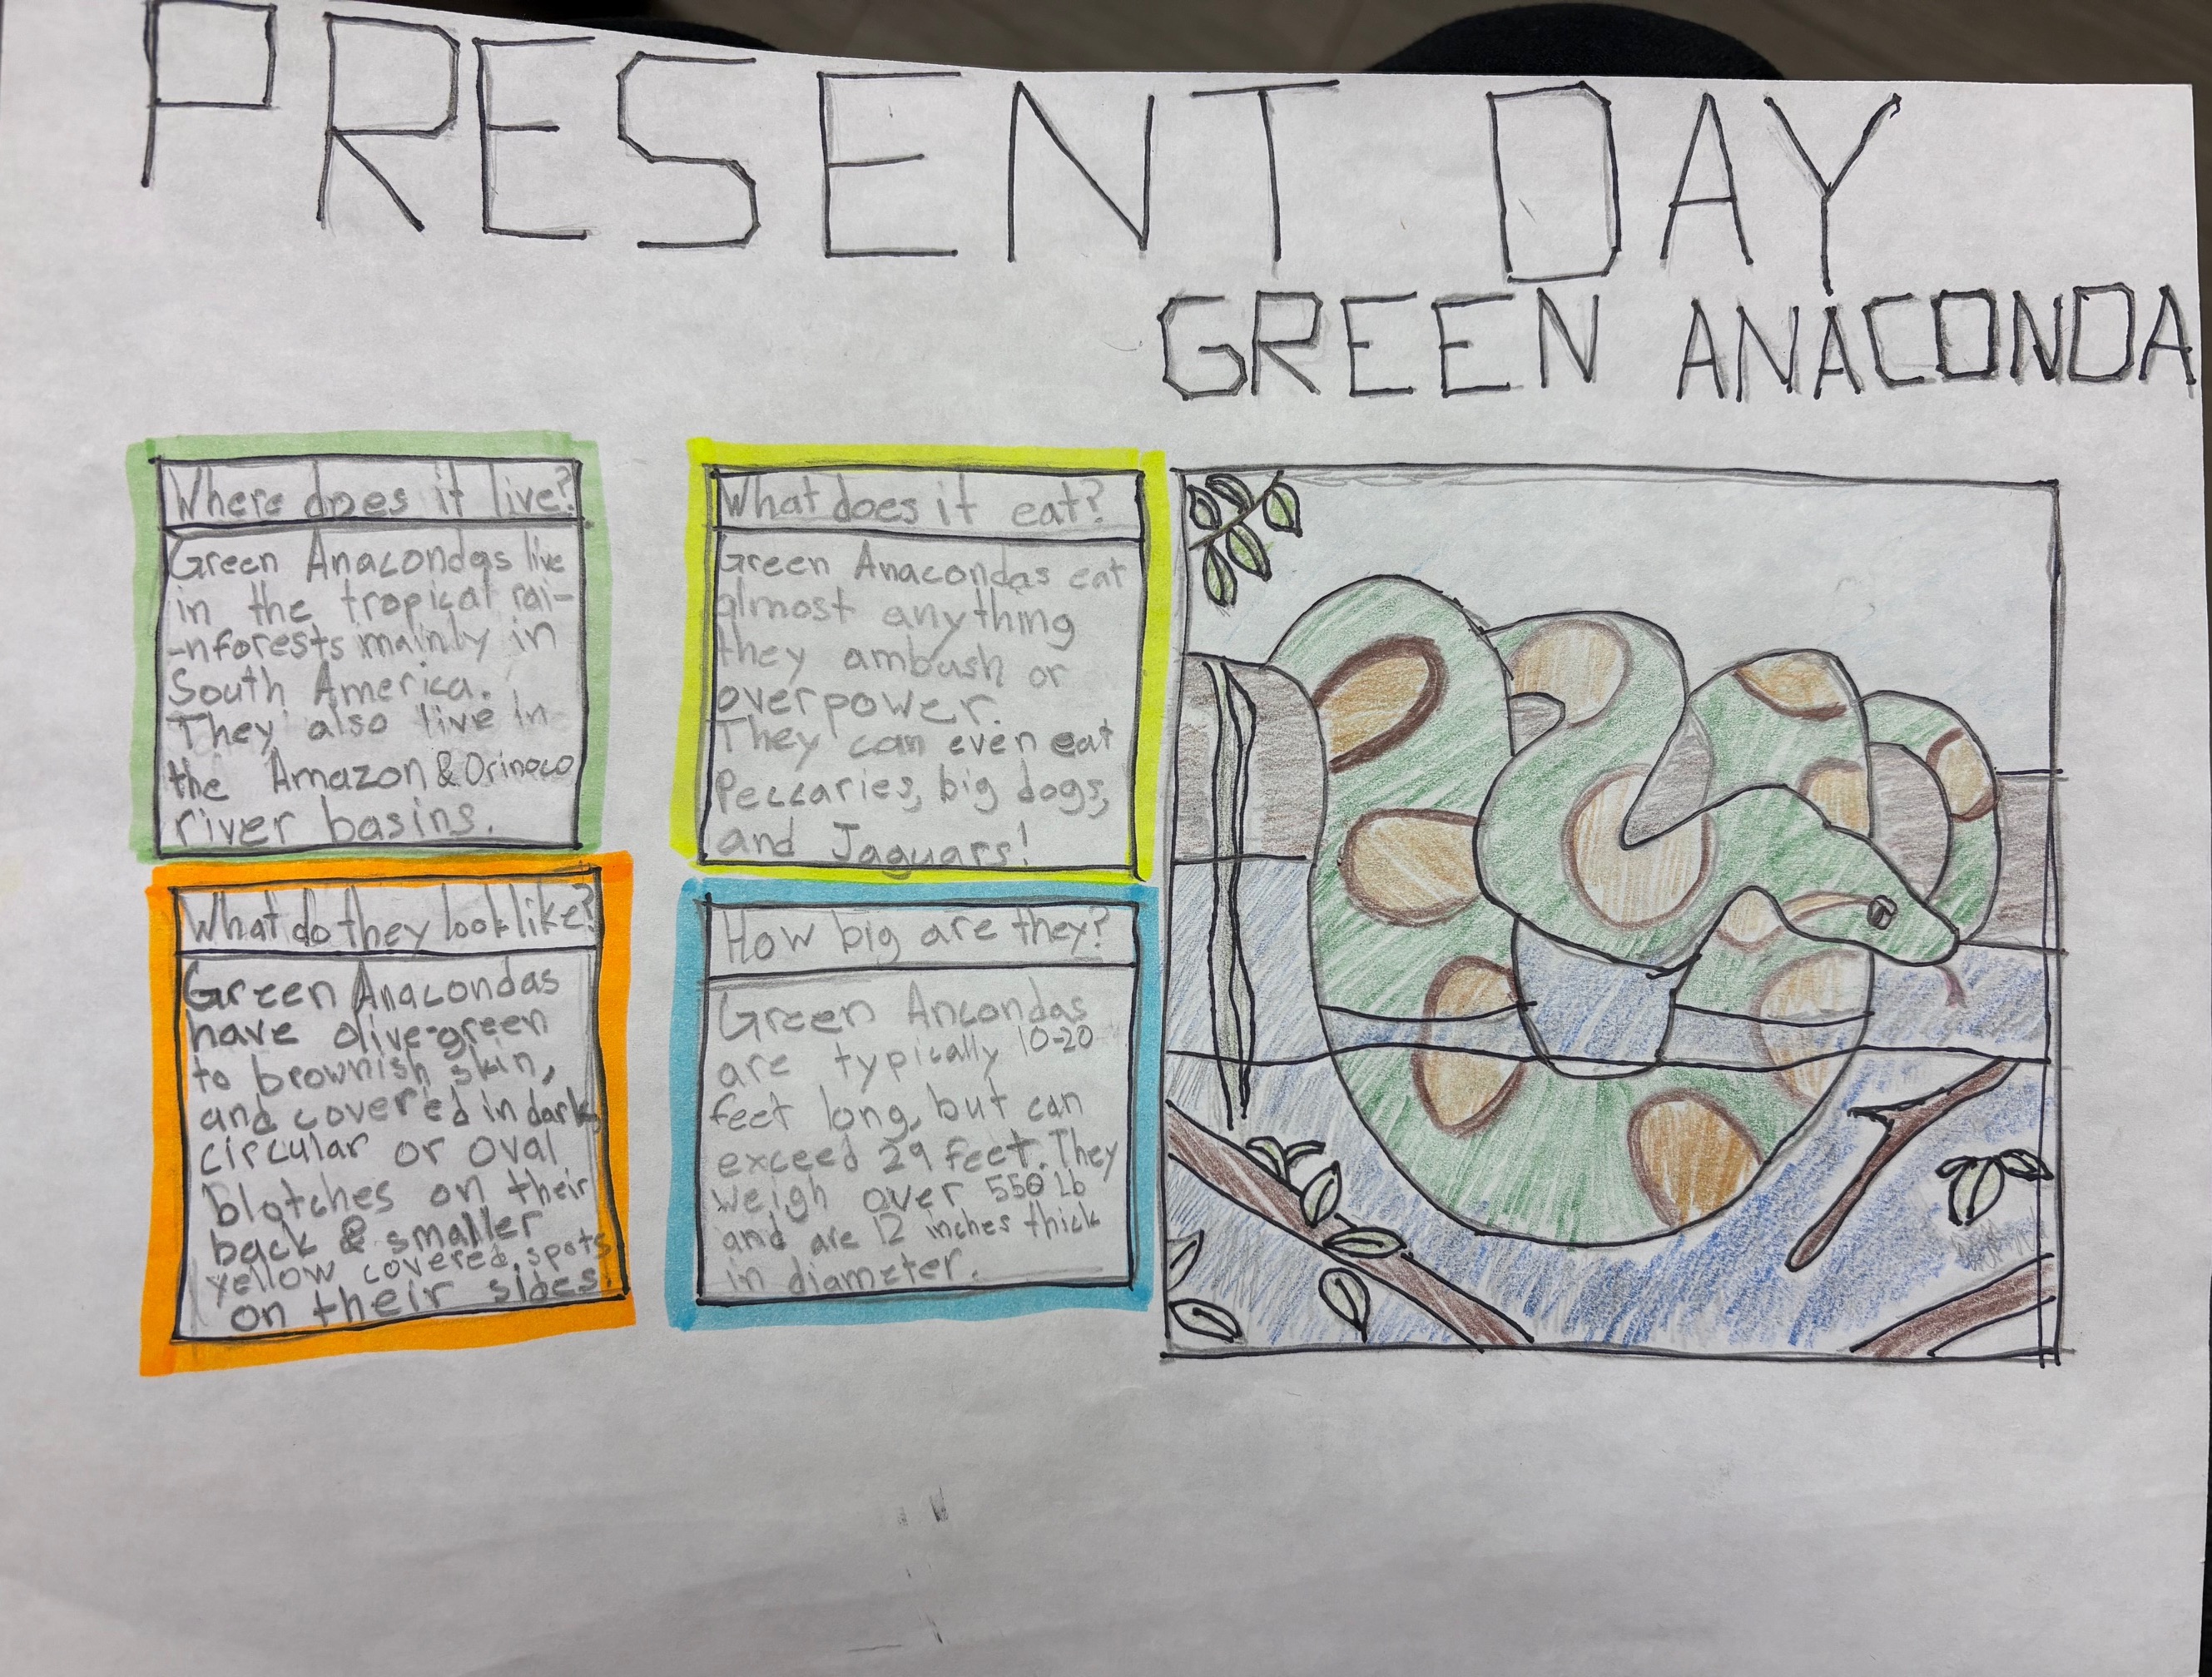 PRESENT DAY
GREEN ANACONDA
Where does it live?
Green Anacondas live
in the tropical rai-
-nforests mainly in
South America.
They also live in
the Amazon & Orinoco
river basins.
What does it eat?
Green Anacondas eat
almost anything
they ambush or
overpower.
They can even eat
Peccaries, big dogs,
and Jaguars!
What do they look like?
Green Anacondas
have olive-green
to brownish skin,
and covered in dark
circular or oval
blotches on their
back & smaller
yellow covered spots
on their sides.
How big are they?
Green Ancondas
are typically 10-20
feet long, but can
exceed 29 feet. They
weigh over 550 Lb
and are 12 inches thick
in diameter.